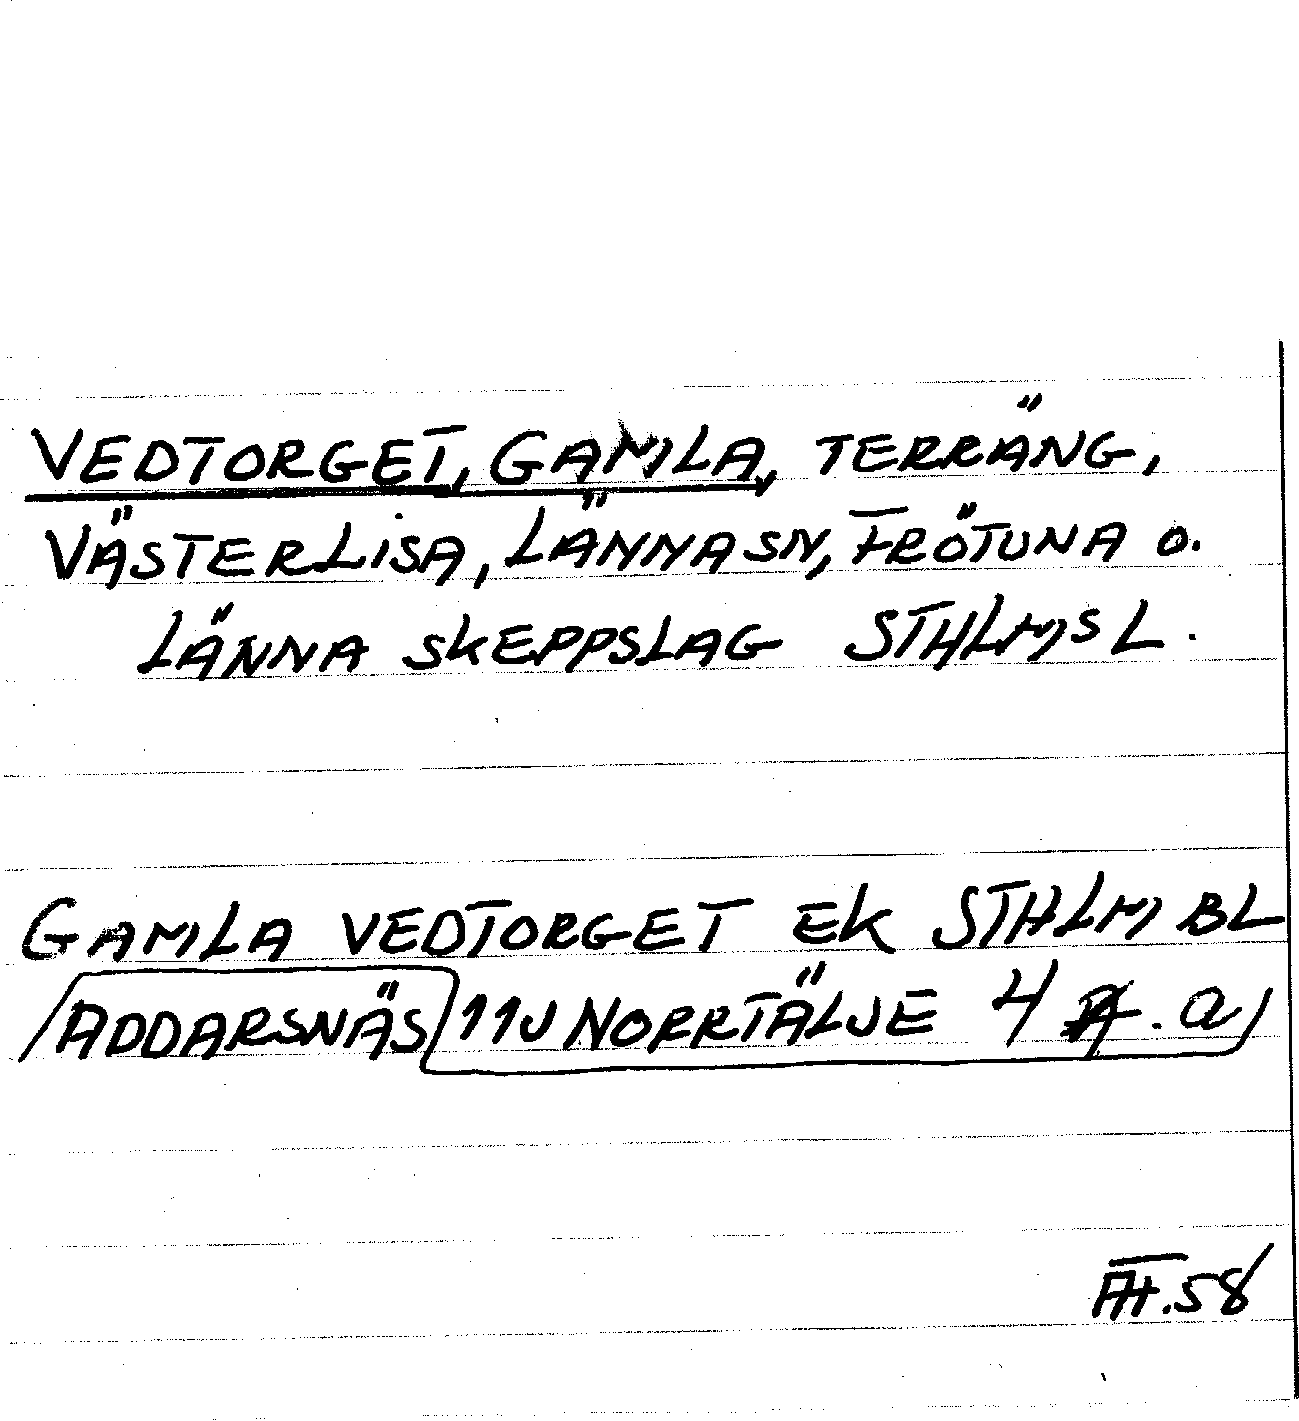 VEDTORGET, GAMLA, TERRÄNG,
VÄSTERLISA, LÄNNA SN, FRÖTUNA O.
LÄNNA SKEPPSLAG STHLMS L.
GAMLA VEDTORGET EK STHLM BL
ADDARSNÄS 11J NORRTÄLJE 4 . a
.58